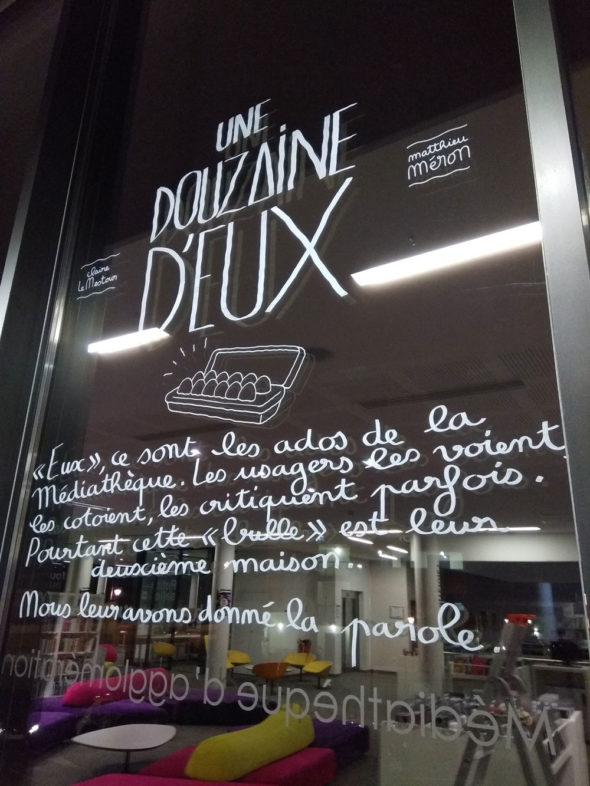 UNE
DOUZAINE
D'EUX
matthieu
méron
claire
Le Mestour
«Eux», ce sont les ados de la
Médiathèque. Les usagers les voient,
les cotoient, les critiquent parfois.
Pourtant cette «bulle» est leur
deuxième maison.
Nous leur avons donné la parole.
Médiathèque d'agglomération